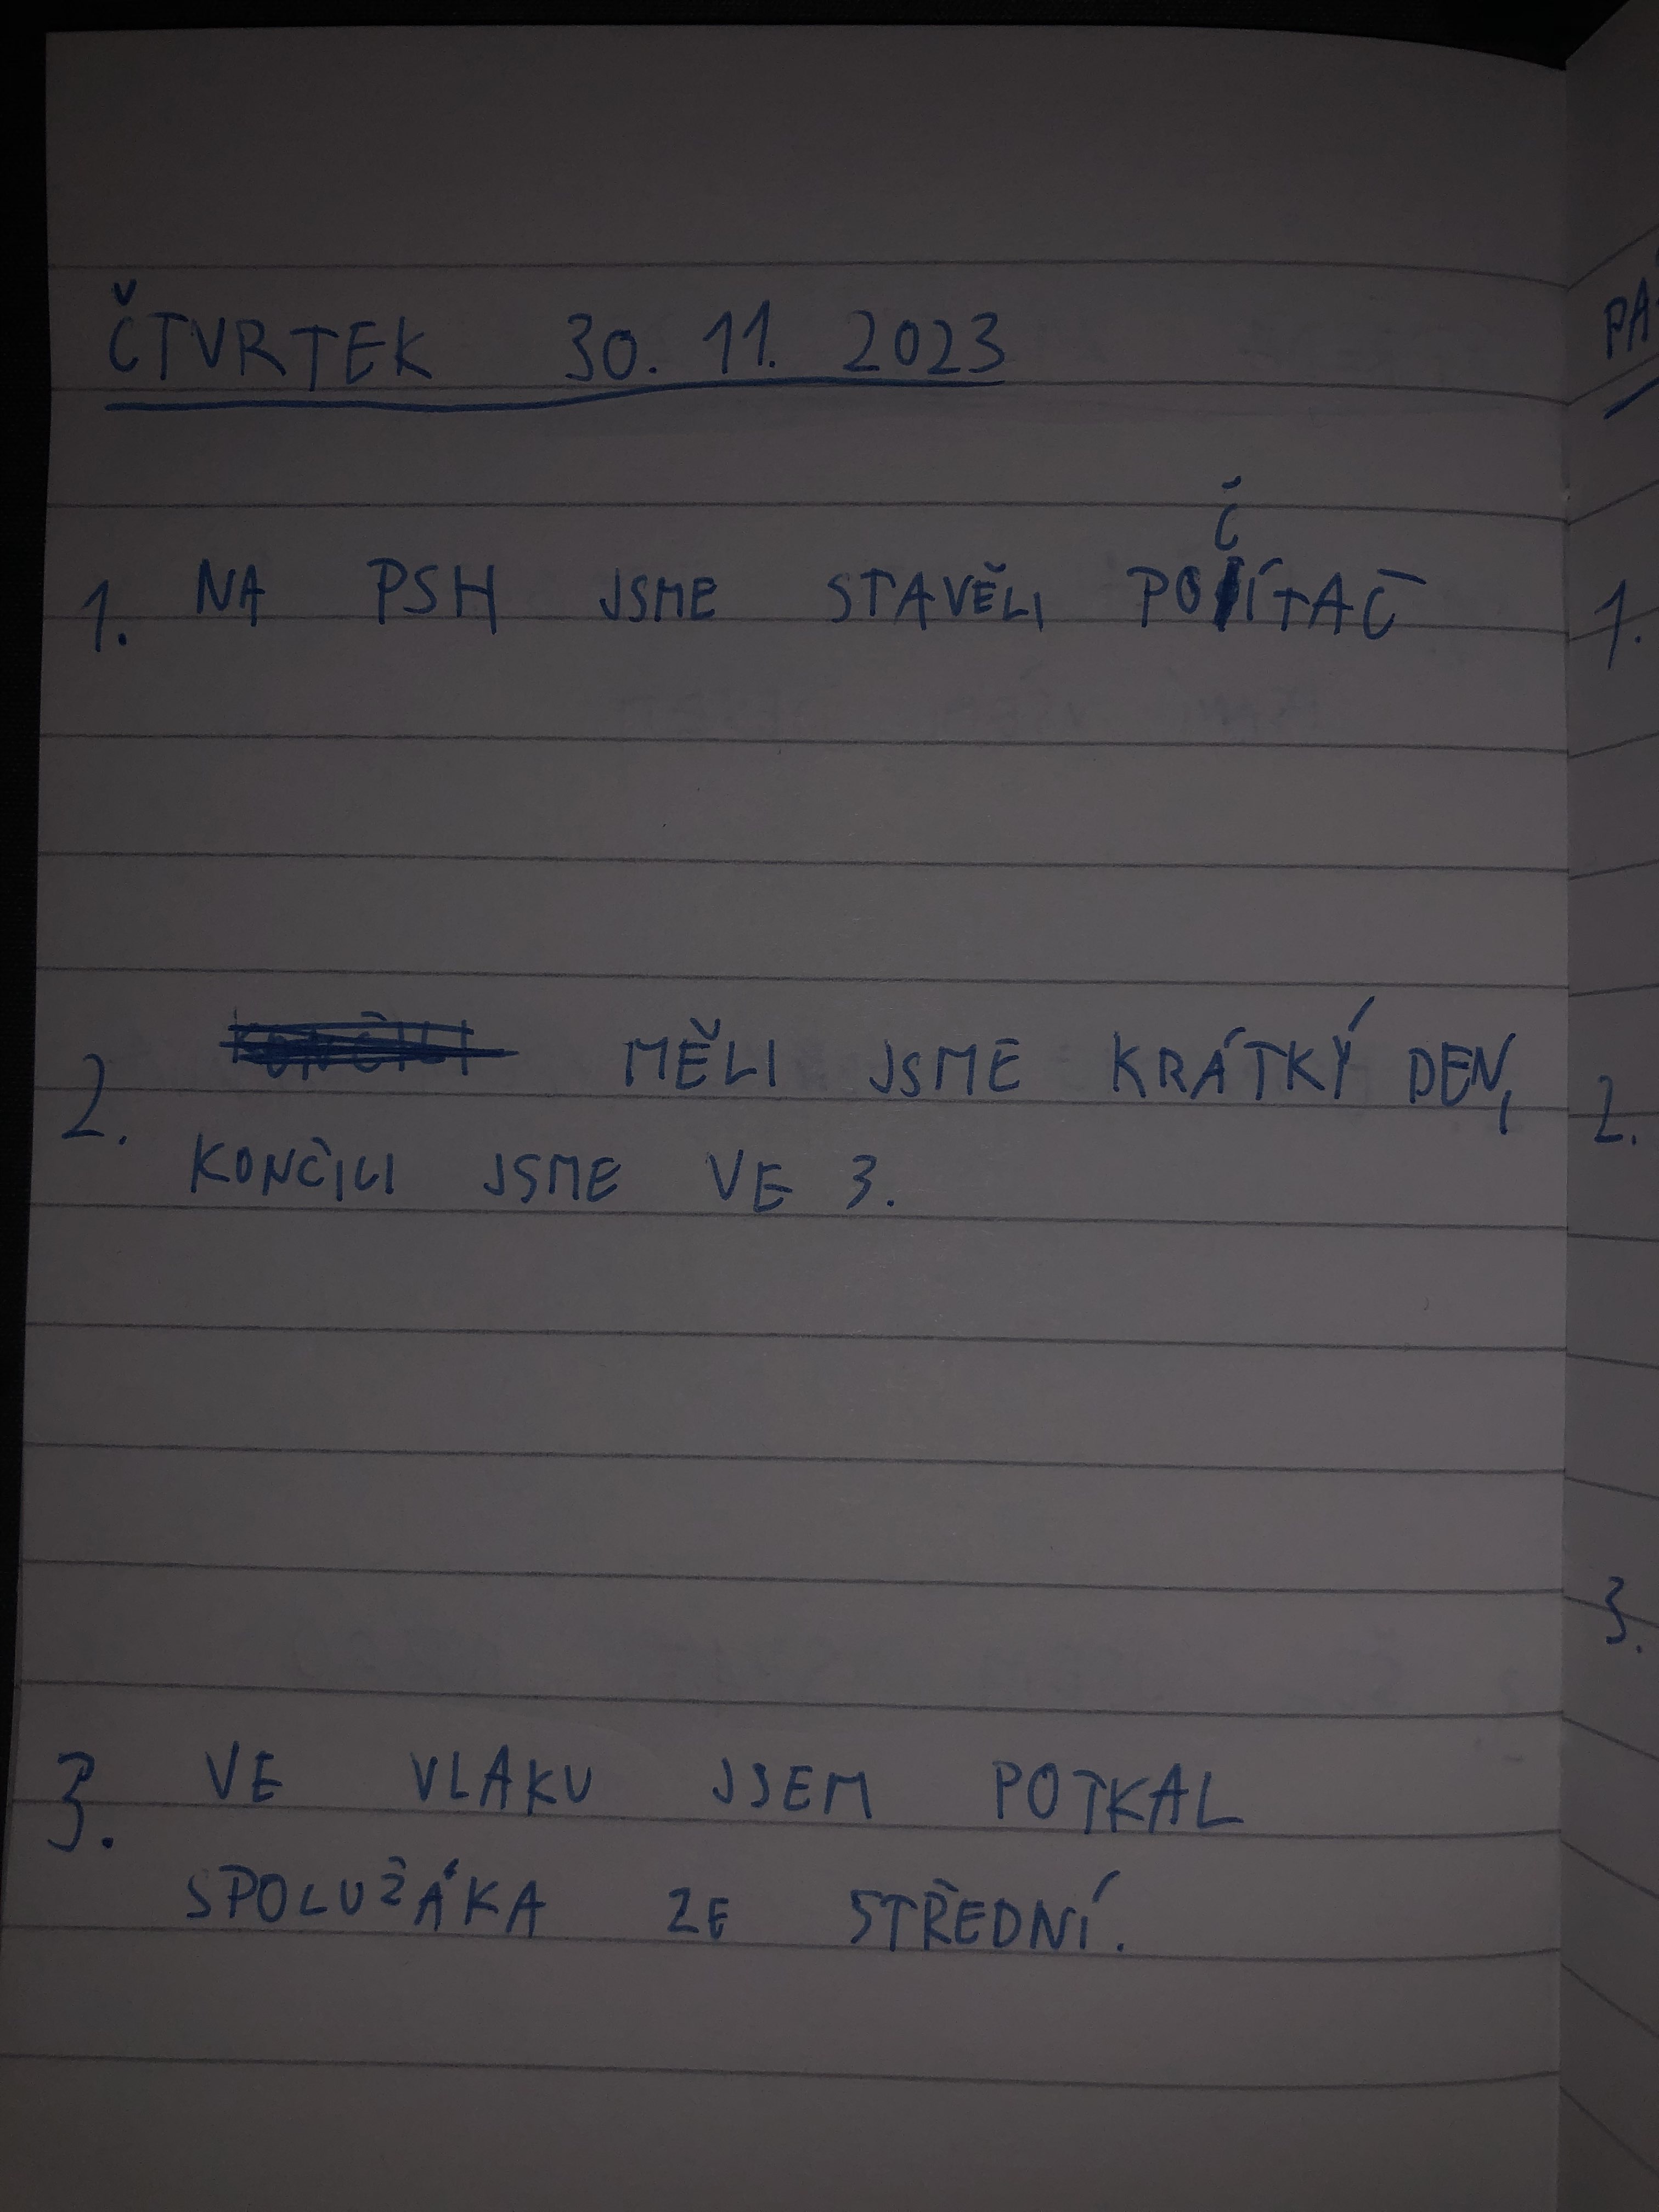 ČTVRTEK 30. 11. 2023
1. NA PSH JSME STAVĚLI POČÍTAČ
2. MĚLI JSME KRÁTKÝ DEN,
KONČILI JSME VE 3.
3. VE VLAKU JSEM POTKAL
SPOLUŽÁKA ZE STŘEDNÍ.
PÁ
1.
2.
3.